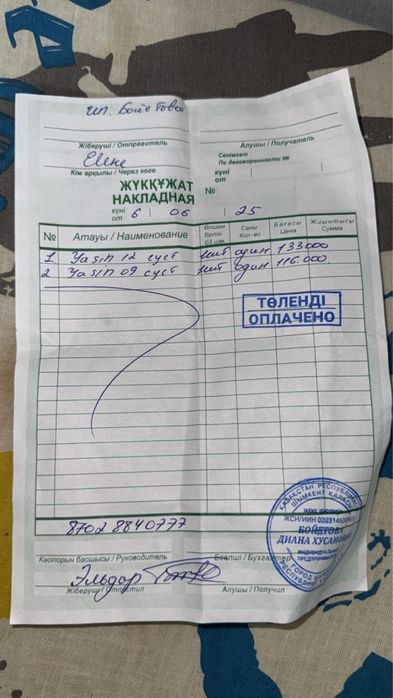 ИП. Бойетова
Жіберуші / Отправитель Алушы / Получатель
Елене
Кім арқылы / Через кого
Сенімхат
По договоренности №
ЖҮКҚҰЖАТ
НАКЛАДНАЯ
күні
от
№
күні
от 6 06 25
№ Атауы / Наименование Өлшем бірлігі Ед.изм. Саны Кол-во Бағасы Цена Жиынтығы Сумма
1 Yasin 12 суст шт один 133000
2 Yasin 09 суст шт один 116.000
ТӨЛЕНДІ
ОПЛАЧЕНО
ҚАЗАҚСТАН РЕСПУБЛИКАСЫ
ШЫМКЕНТ ҚАЛАСЫ
ЖСН/ИИН
БОЙЕТОВА
ДИАНА ХУСАНОВНА
ИНДИВИДУАЛЬНЫЙ
ПРЕДПРИНИМАТЕЛЬ
8702 8840777
Кәсіпорын басшысы / Руководитель Есепші / Бухгалтер
Эльдар
Жіберуші / Отпустил Алушы / Получил